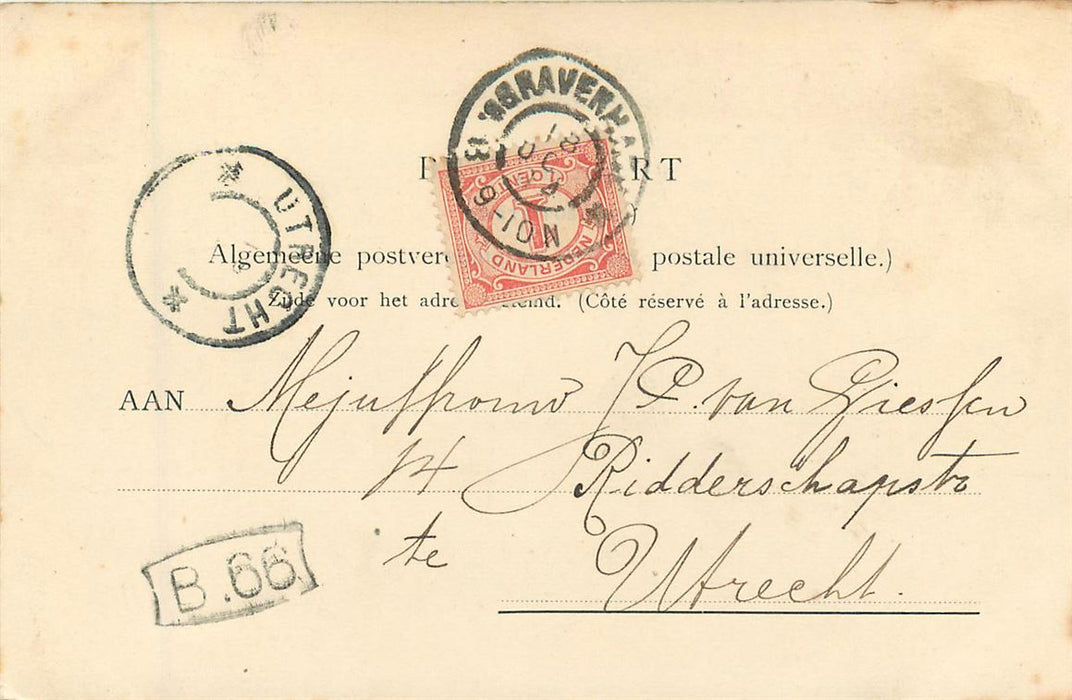 'SGRAVENHA
18
N 10-6
1 CENT
NEDERLAND
UTRECHT
RT
Algemeene postver postale universelle.)
Zijde voor het adre stemd. (Côté réservé à l'adresse.)
AAN Mejuffrouw J. P. van Giessen
14 Ridderschapstr
te Utrecht.
B.66